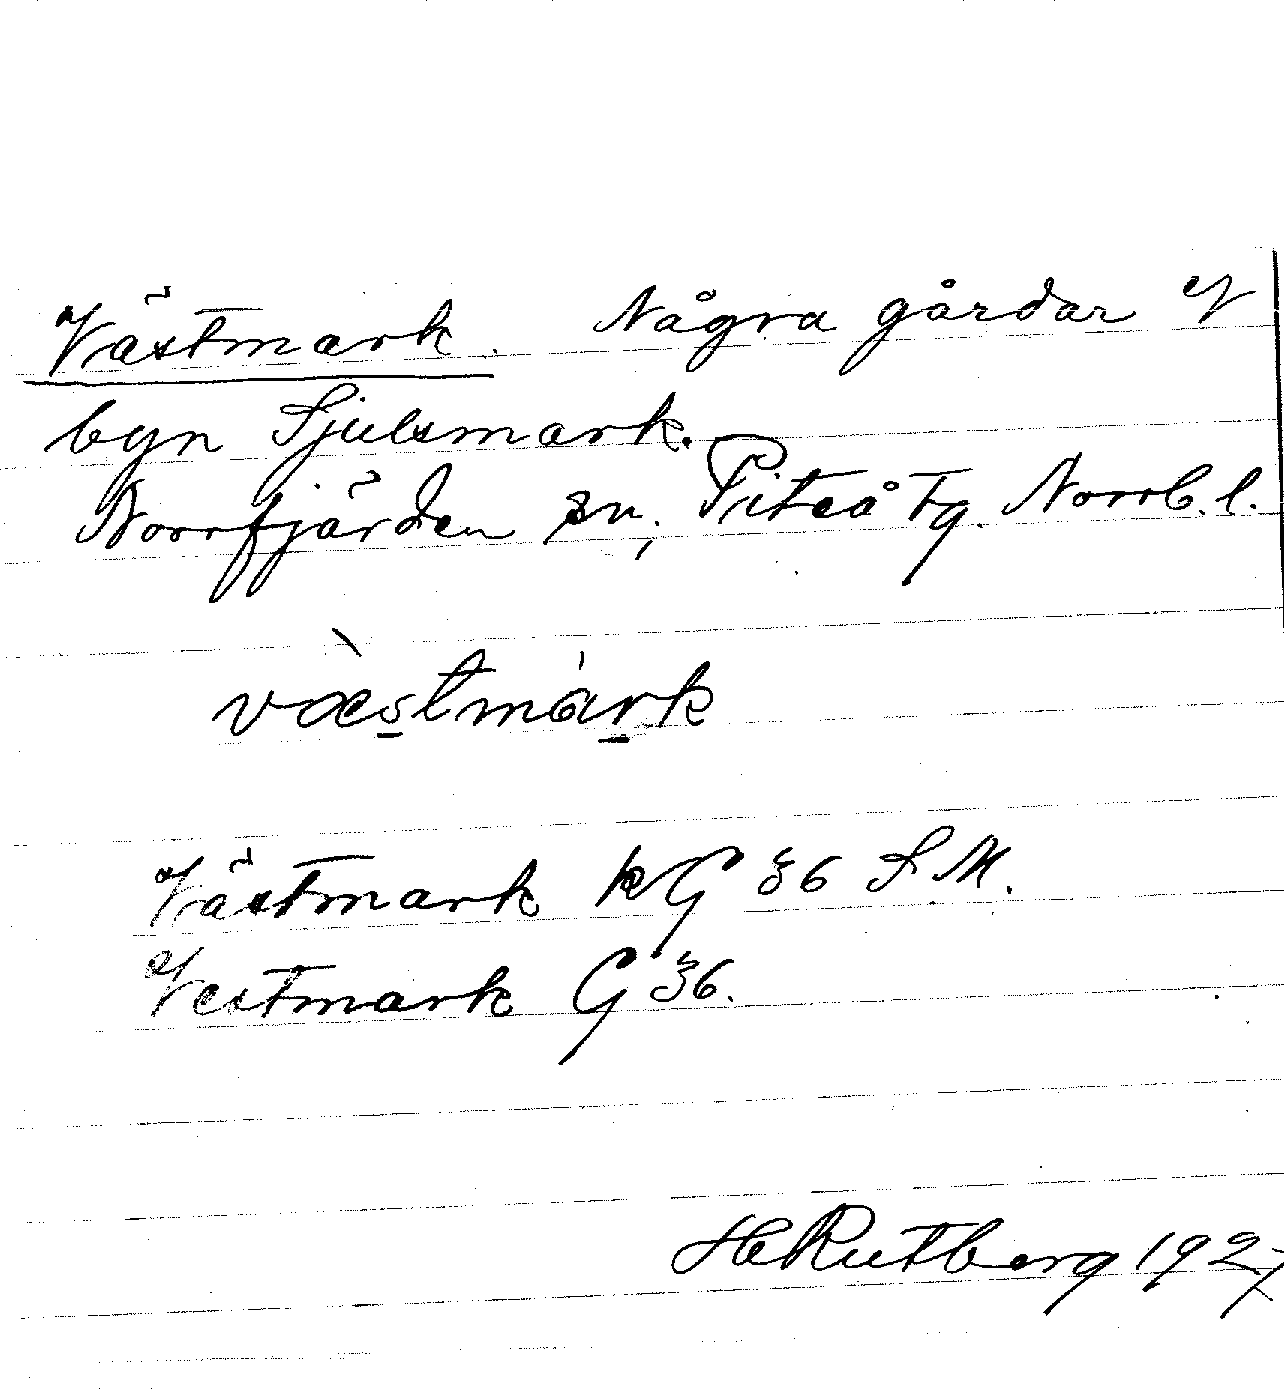 Västmark. Några gårdar i
byn Sjulsmark.
Norrfjärden sn, Piteå tg. Norrb. l.
væ̀stmárk
Västmark kG 36 S M.
Vestmark G 36.
H Rutberg 1927